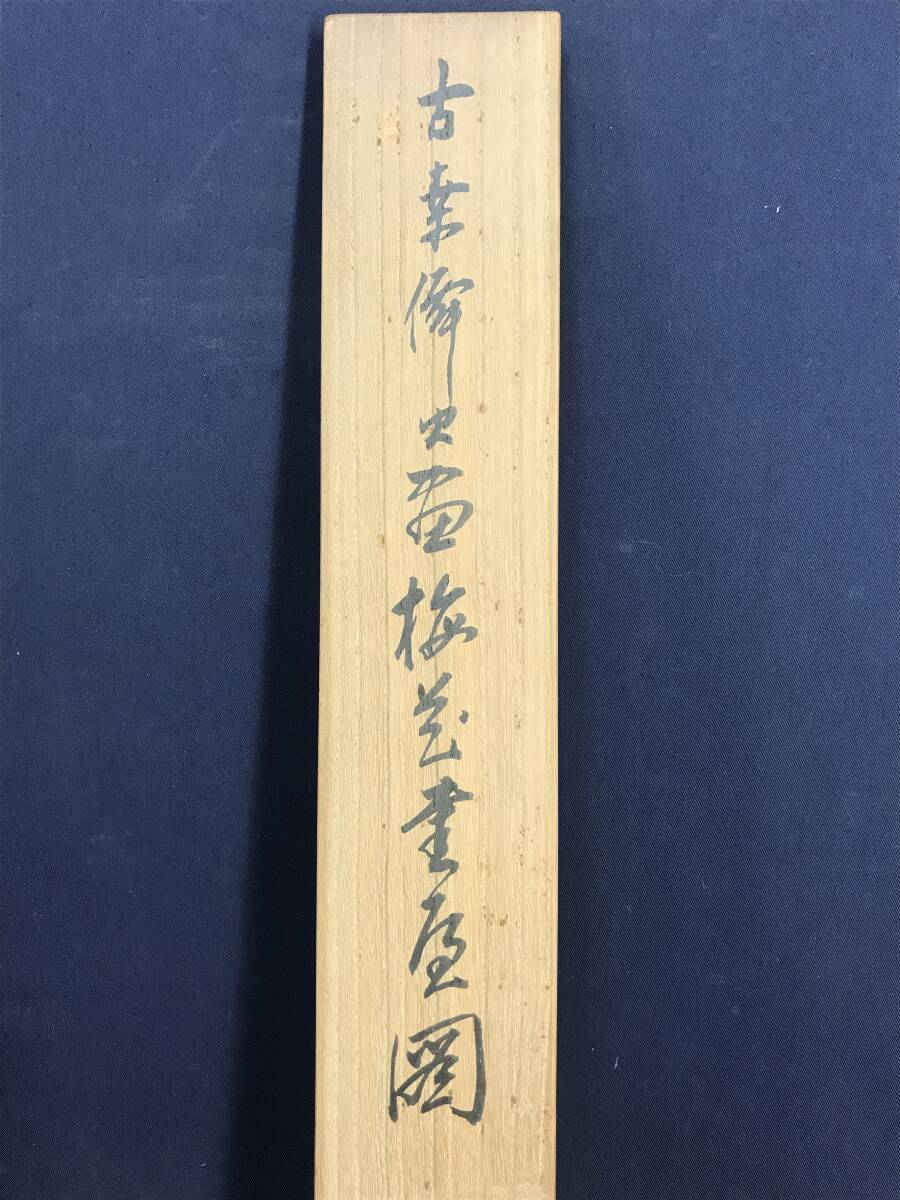 古桑僊史画梅花書屋圖